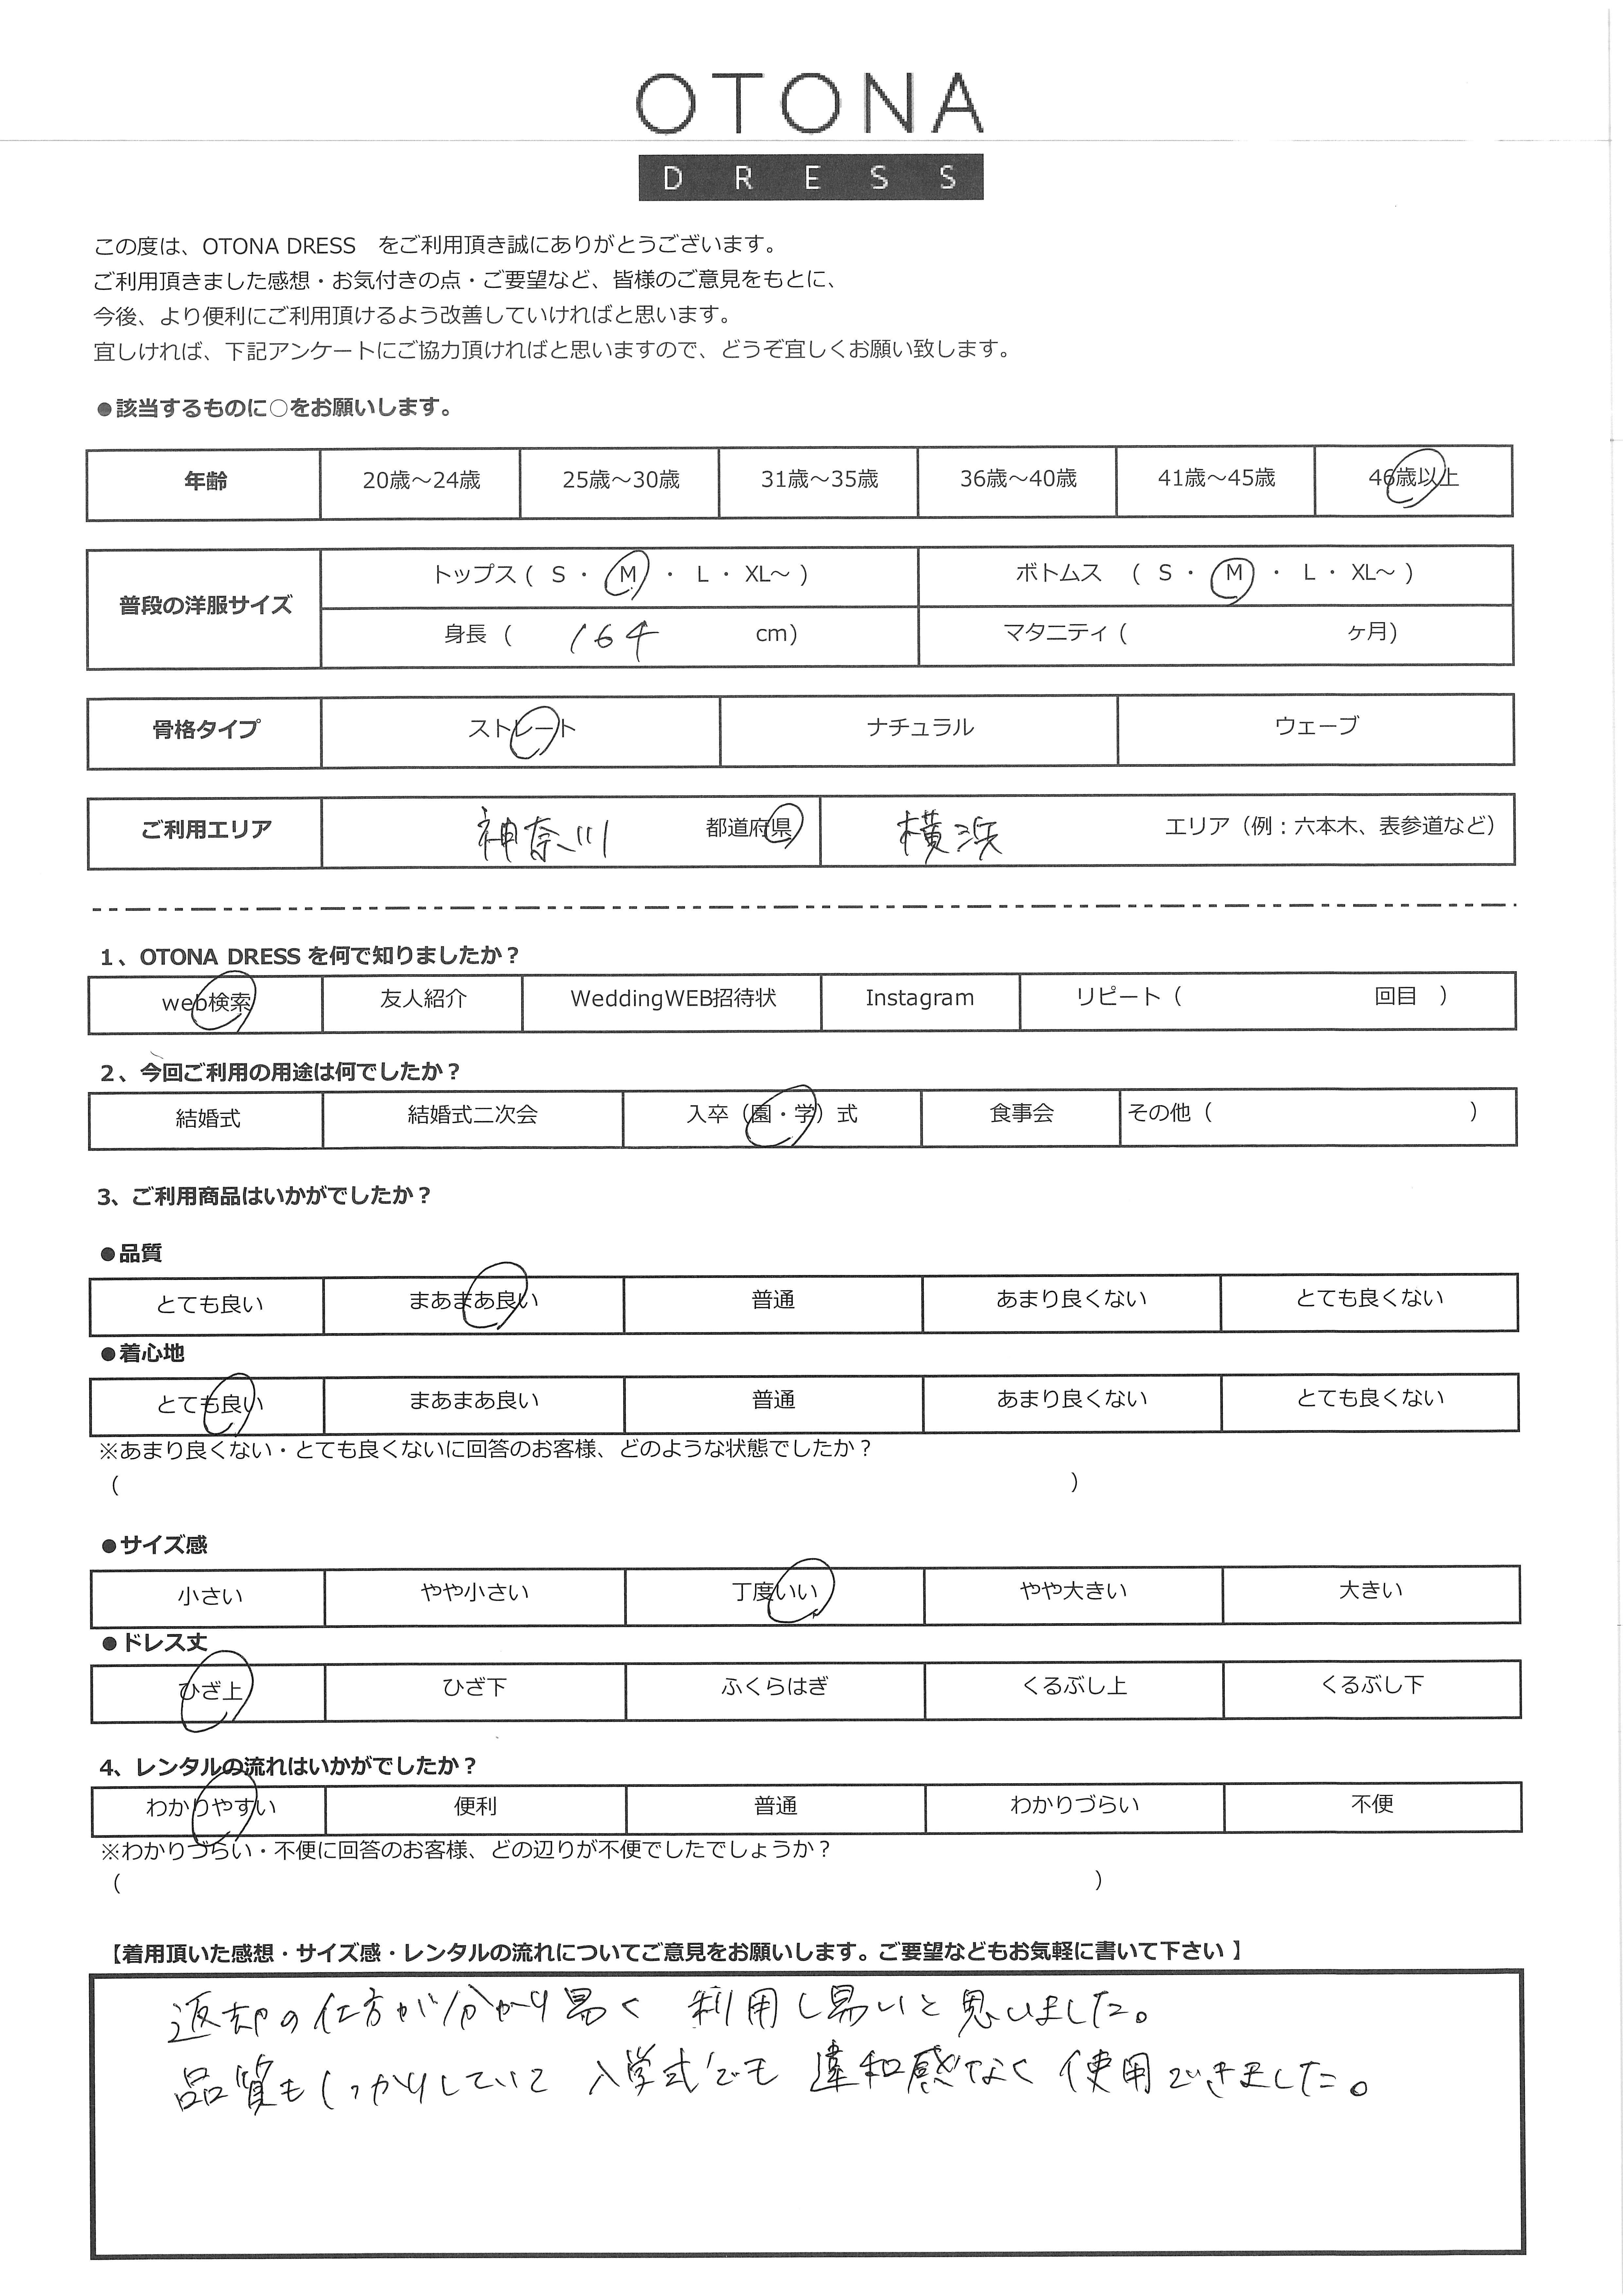 OTONA
DRESS
この度は、OTONA DRESS　をご利用頂き誠にありがとうございます。
ご利用頂きました感想・お気付きの点・ご要望など、皆様のご意見をもとに、
今後、より便利にご利用頂けるよう改善していければと思います。
宜しければ、下記アンケートにご協力頂ければと思いますので、どうぞ宜しくお願い致します。
●該当するものに○をお願いします。
年齢 20歳～24歳 25歳～30歳 31歳～35歳 36歳～40歳 41歳～45歳 46歳以上
普段の洋服サイズ トップス ( S ・ M ・ L ・ XL～ ) ボトムス ( S ・ M ・ L ・ XL～ )
身長 ( 164 cm) マタニティ ( ヶ月)
骨格タイプ ストレート ナチュラル ウェーブ
ご利用エリア 神奈川 都道府県 横浜 エリア（例：六本木、表参道など）
1、OTONA DRESS を何で知りましたか？
web検索 友人紹介 WeddingWEB招待状 Instagram リピート（ 回目 ）
2、今回ご利用の用途は何でしたか？
結婚式 結婚式二次会 入卒（園・学）式 食事会 その他（ ）
3、ご利用商品はいかがでしたか？
●品質
とても良い まあまあ良い 普通 あまり良くない とても良くない
●着心地
とても良い まあまあ良い 普通 あまり良くない とても良くない
※あまり良くない・とても良くないに回答のお客様、どのような状態でしたか？
( )
●サイズ感
小さい やや小さい 丁度いい やや大きい 大きい
●ドレス丈
ひざ上 ひざ下 ふくらはぎ くるぶし上 くるぶし下
4、レンタルの流れはいかがでしたか？
わかりやすい 便利 普通 わかりづらい 不便
※わかりづらい・不便に回答のお客様、どの辺りが不便でしたでしょうか？
( )
【着用頂いた感想・サイズ感・レンタルの流れについてご意見をお願いします。ご要望などもお気軽に書いて下さい 】
返却の仕方が分かり易く 利用し易いと思いました。
品質もしっかりしていて 入学式でも 違和感なく 使用できました。